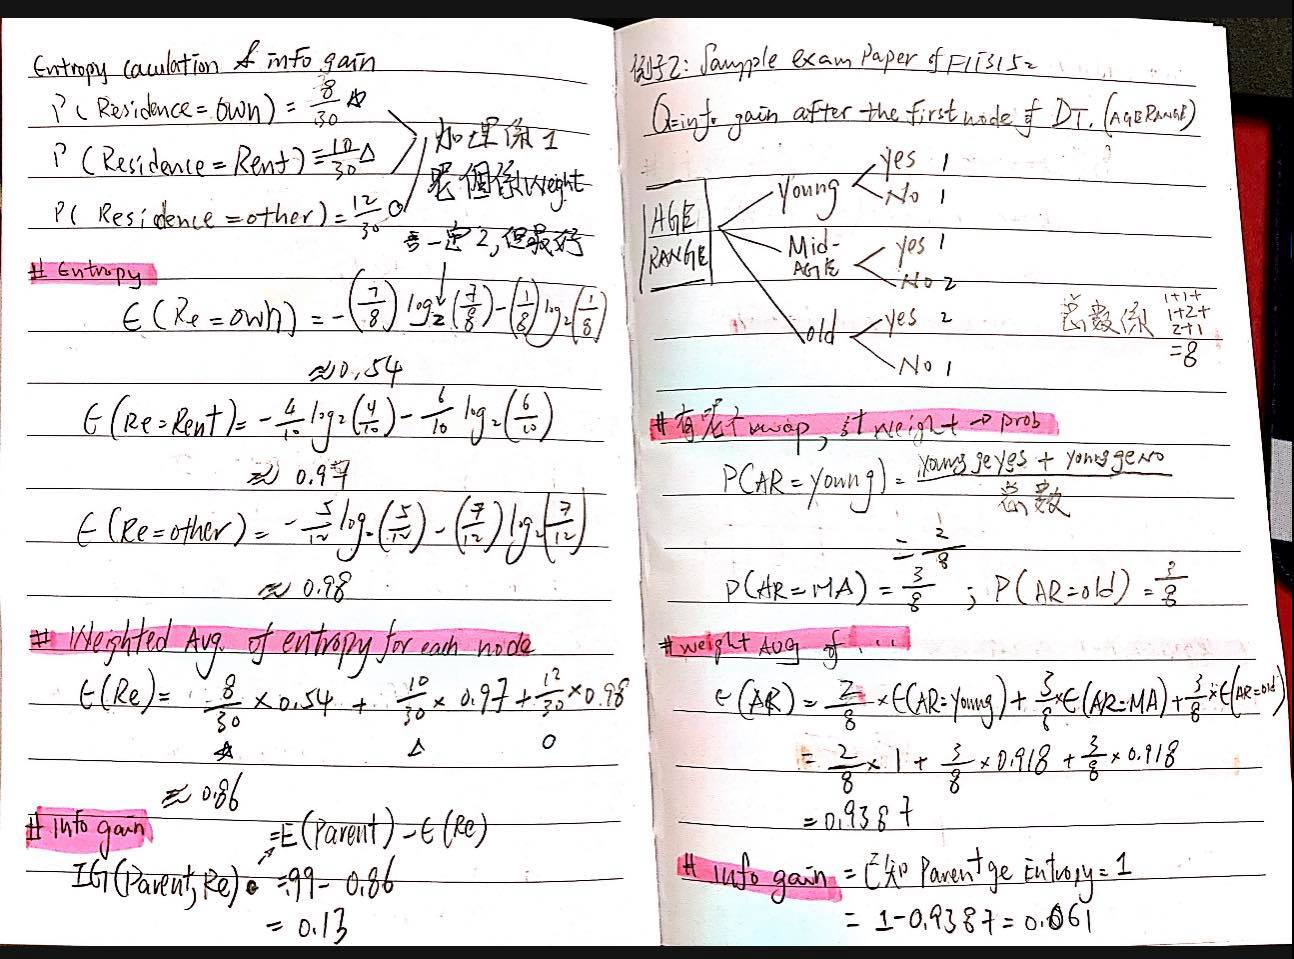 Entropy caculation & info gain
P(Residence=own) = 8/30 ☆
P(Residence=Rent) = 10/30 △
P(Residence=other) = 12/30 ○
加埋係1
呢個係Weight
唔一定2,但最好
# Entropy
E(Re=own) = -(7/8) log₂(7/8) - (1/8) log₂(1/8)
≈ 0.54
E(Re=Rent) = -4/10 log₂(4/10) - 6/10 log₂(6/10)
≈ 0.97
E(Re=other) = -5/12 log₂(5/12) - (7/12) log₂(7/12)
≈ 0.98
# Weighted Avg. of entropy for each node
E(Re) = 8/30 × 0.54 + 10/30 × 0.97 + 12/30 × 0.98
☆ △ ○
≈ 0.86
# Info gain
= E(Parent) - E(Re)
IG(Parent, Re) = .99 - 0.86
= 0.13
例子2: Sampple exam Paper of
Q=info gain after the first node of DT. (AGE RANGE)
AGE RANGE
Young
yes 1
No 1
Mid-AGE
yes 1
No 2
old
yes 2
No 1
总數係
1+1+
1+2+
2+1
=8
P(AR=Young) = young ge yes + young ge no / 总數
= 2/8
P(AR=MA) = 3/8 ; P(AR=old) = 3/8
# weight AVG of ...
E(AR) = 2/8 × E(AR=Young) + 3/8 × E(AR=MA) + 3/8 × E(AR=old)
= 2/8 × 1 + 3/8 × 0.918 + 3/8 × 0.918
= 0.9387
# Info gain = 已知 Parent ge Entropy = 1
= 1 - 0.9387 = 0.061